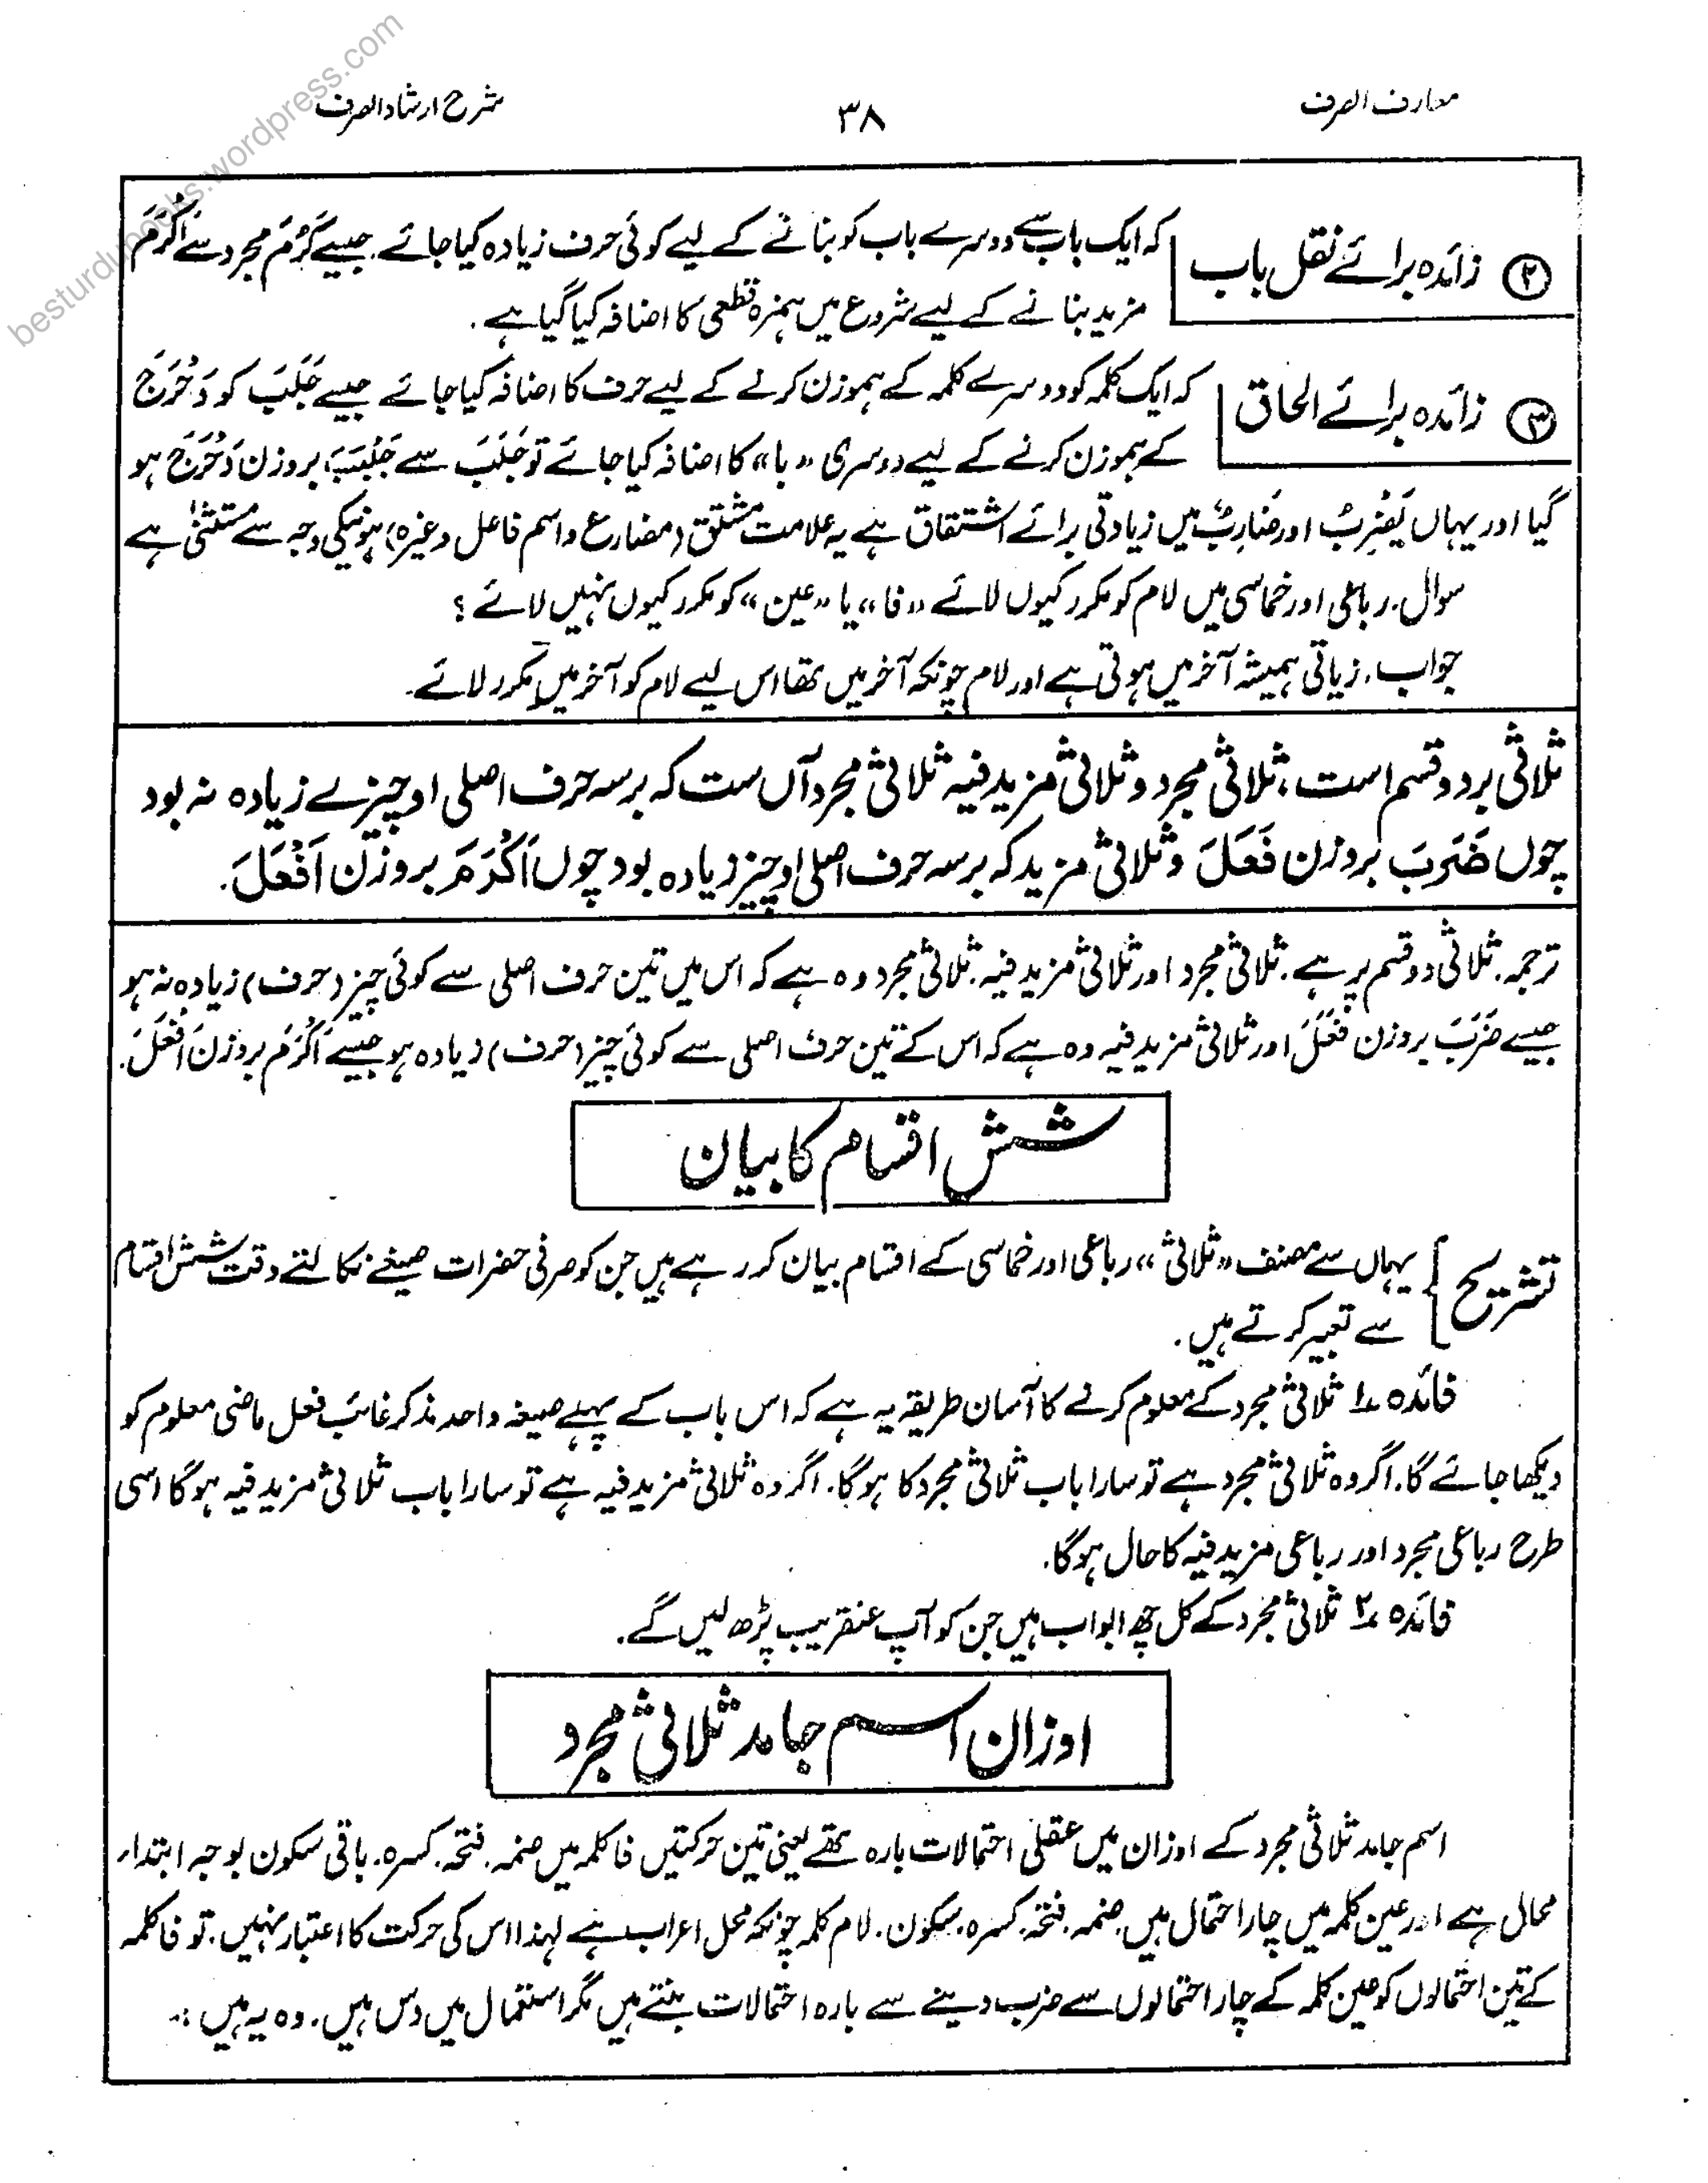 معارف الصرف
۳۸
شرح ارشاد الصرف
besturdubooks.wordpress.com
② زائدہ برائے نقل باب کہ ایک باب سے دوسرے باب کو بنانے کے لیے کوئی حرف زیادہ کیا جائے. جیسے کَرُمَ مجرد سے اَکْرَمَ
مزید بنانے کے لیے شروع میں ہمزہ قطعی کا اضافہ کیا گیا ہے.
③ زائدہ برائے الحاق کہ ایک کلمہ کو دوسرے کلمہ کے ہموزن کرنے کے لیے حرف کا اضافہ کیا جائے جیسے جَلَبَ کو دَحْرَجَ
کے ہموزن کرنے کے لیے دوسری «با» کا اضافہ کیا جائے تو جَلَبَ سے جَلْبَبَ بروزن دَحْرَجَ ہو
گیا اور یہاں یَضْرِبُ اور ضَارِبٌ میں زیادتی برائے اشتقاق ہے یہ علامت مشتق (مضارع و اسم فاعل وغیرہ) ہونیکی وجہ سے مستثنیٰ ہے
سوال. رباعی اور خماسی میں لام کو مکرر کیوں لائے «فا» یا «عین» کو مکرر کیوں نہیں لائے ؟
جواب. زیاتی ہمیشہ آخر میں ہوتی ہے اور لام چونکہ آخر میں تھا اس لیے لام کو آخر میں مکرر لائے۔
ثلاثی بر دو قسم است، ثلاثی مجرد و ثلاثی مزید فیہ ثلاثی مجرد آں ست کہ بر سہ حرف اصلی او چیزے زیادہ نہ بود
چوں ضَرَبَ بروزن فَعَلَ و ثلاثی مزید کہ بر سہ حرف اصلی او چیز زیادہ بود چوں اَکْرَمَ بروزن اَفْعَلَ.
ترجمہ. ثلاثی دو قسم پر ہے. ثلاثی مجرد اور ثلاثی مزید فیہ. ثلاثی مجرد وہ ہے کہ اس میں تین حرف اصلی سے کوئی چیز (حرف) زیادہ نہ ہو
جیسے ضَرَبَ بروزن فَعَلَ اور ثلاثی مزید فیہ وہ ہے کہ اس کے تین حرف اصلی سے کوئی چیز (حرف) زیادہ ہو جیسے اَکْرَمَ بروزن اَفْعَلَ.
شش اقسام کا بیان
تشریح } یہاں سے مصنف «ثلاثی» رباعی اور خماسی کے اقسام بیان کر رہے ہیں جن کو صرفی حضرات صیغے نکالتے وقت شش اقسام
سے تعبیر کرتے ہیں.
فائدہ ۱ ثلاثی مجرد کے معلوم کرنے کا آسان طریقہ یہ ہے کہ اس باب کے پہلے صیغہ واحد مذکر غائب فعل ماضی معلوم کو
دیکھا جائے گا. اگر وہ ثلاثی مجرد ہے تو سارا باب ثلاثی مجرد کا ہوگا. اگر وہ ثلاثی مزید فیہ ہے تو سارا باب ثلاثی مزید فیہ ہوگا اسی
طرح رباعی مجرد اور رباعی مزید فیہ کا حال ہوگا.
فائدہ ۲ ثلاثی مجرد کے کل چھ ابواب ہیں جن کو آپ عنقریب پڑھ لیں گے.
اوزان اسم جامد ثلاثی مجرد
اسم جامد ثلاثی مجرد کے اوزان میں عقلی احتمالات بارہ تھے یعنی تین حرکتیں فا کلمہ میں ضمہ. فتحہ. کسرہ. باقی سکون بوجہ ابتداء
محال ہے اور عین کلمہ میں چار احتمال ہیں. ضمہ. فتحہ. کسرہ. سکون. لام کلمہ چونکہ محل اعراب ہے لہذا اس کی حرکت کا اعتبار نہیں. تو فا کلمہ
کے تین احتمالوں کو عین کلمہ کے چار احتمالوں سے ضرب دینے سے بارہ احتمالات بنتے ہیں مگر استعمال میں دس ہیں. وہ یہ ہیں :-